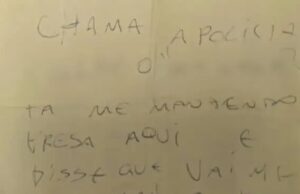 CHAMA A POLICIA
O "
TA ME MANTENDO
PRESA AQUI E
DISSE QUE VAI ME